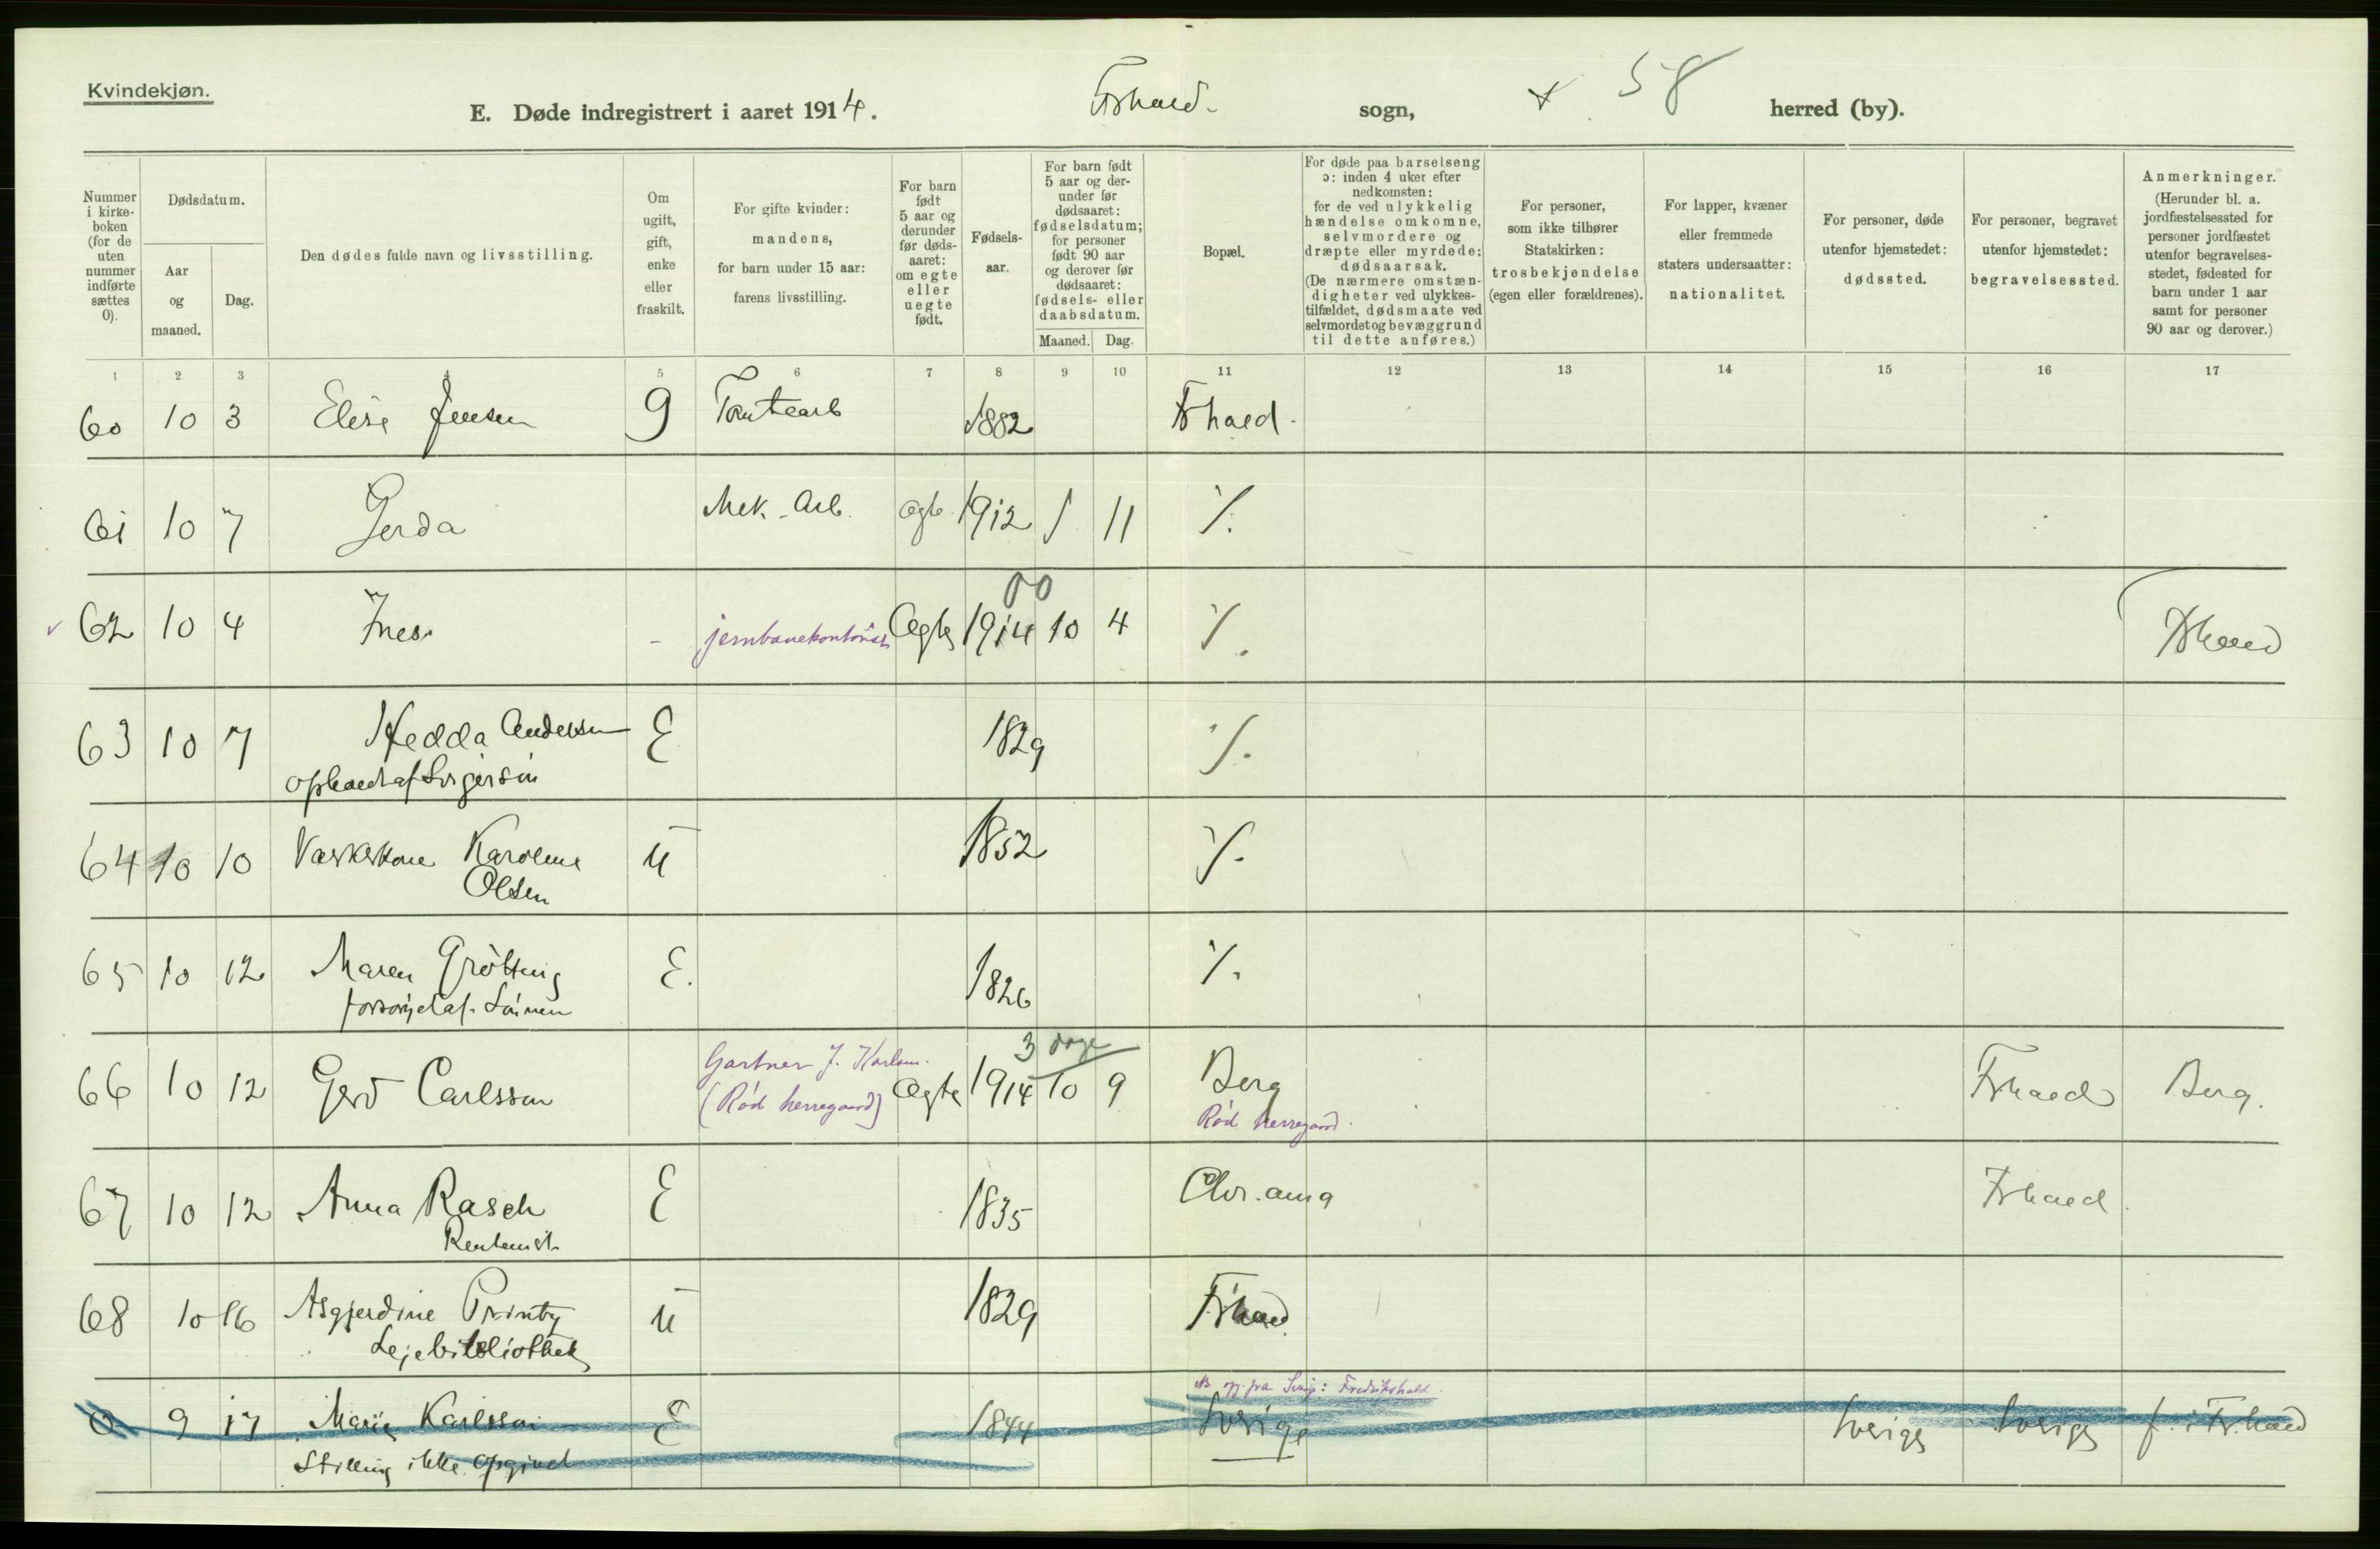 Kvindekjøn.
E. Døde indregistrert i aaret 1914. Frhald. sogn, 58 herred (by).
Nummer i kirkeboken (for de uten nummer indførte sættes 0).
Dødsdatum.
Aar og maaned.
Dag.
Den dødes fulde navn og livsstilling.
Om ugift, gift, enke eller fraskilt.
For gifte kvinder: mandens, for barn under 15 aar: farens livsstilling.
For barn født 5 aar og derunder før dødsaaret: om egte eller uegte født.
Fødselsaar.
For barn født 5 aar og derunder før dødsaaret: fødselsdatum; for personer født 90 aar og derover før dødsaaret: fødsels- eller daabsdatum.
Maaned. Dag.
Bopæl.
For døde paa barselseng ɔ: inden 4 uker efter nedkomsten: for de ved ulykkelig hændelse omkomne, selvmordere og dræpte eller myrdede: dødsaarsak. (De nærmere omstændigheter ved ulykkestilfældet, dødsmaate ved selvmordet og bevæggrund til dette anføres.)
For personer, som ikke tilhører Statskirken: trosbekjendelse (egen eller forældrenes).
For lapper, kvæner eller fremmede staters undersaatter: nationalitet.
For personer, døde utenfor hjemstedet: dødssted.
For personer, begravet utenfor hjemstedet: begravelsessted.
Anmerkninger. (Herunder bl. a. jordfæstelsessted for personer jordfæstet utenfor begravelsesstedet, fødested for barn under 1 aar samt for personer 90 aar og derover.)
1 2 3 4 5 6 7 8 9 10 11 12 13 14 15 16 17
60 10 3 Elise Jensen g Tomtearb 1882 Frhald.
61 10 7 Gerda Mek. Arb. Ægte 1912 1 11 %
00
62 10 4 Ines - jernbanekontorist Ægte 1914 10 4 % Frhald
63 10 7 Hedda Andersen E 1829 %
opholdt af
64 10 10 Vaskekone Karoline U 1852 %
Olsen
65 10 12 Maren Grötting E. 1826 %
forsørjet af Sönnen
3 dage
Gartner J. Karlsen.
66 10 12 Gerd Carlsson (Rød herregaard) Ægte 1914 10 9 Berg Frhald Berg.
Rød herregaard.
67 10 12 Anna Rasch E 1835 Chr.ania Frhald.
Rentenist
68 10 16 Asgjerdine Prinby U 1829 Frhald
Lejebibliothek
opg. fra Sverige: Fredrikshald.
0 9 17 Marie Karlsson E 1844 Sverige Sverige Sverige f. i Fr.hald
Stilling ikke opgivet